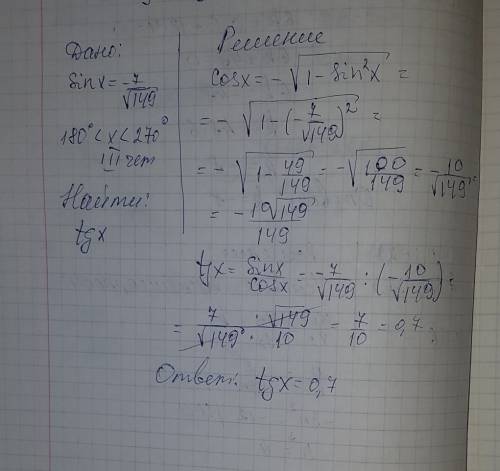 Дано:
sinx = -7/√149
180° < x < 270°
III чет
Найти:
tgx
Решение
cosx = -√(1 - sin²x) =
= -√(1 - (-7/√149)²) =
= -√(1 - 49/149) = -√(100/149) = -10/√149 =
= -10√149/149
tgx = sinx/cosx = -7/√149 : (-10/√149) =
= 7/√149 · √149/10 = 7/10 = 0,7
Ответ: tgx = 0,7